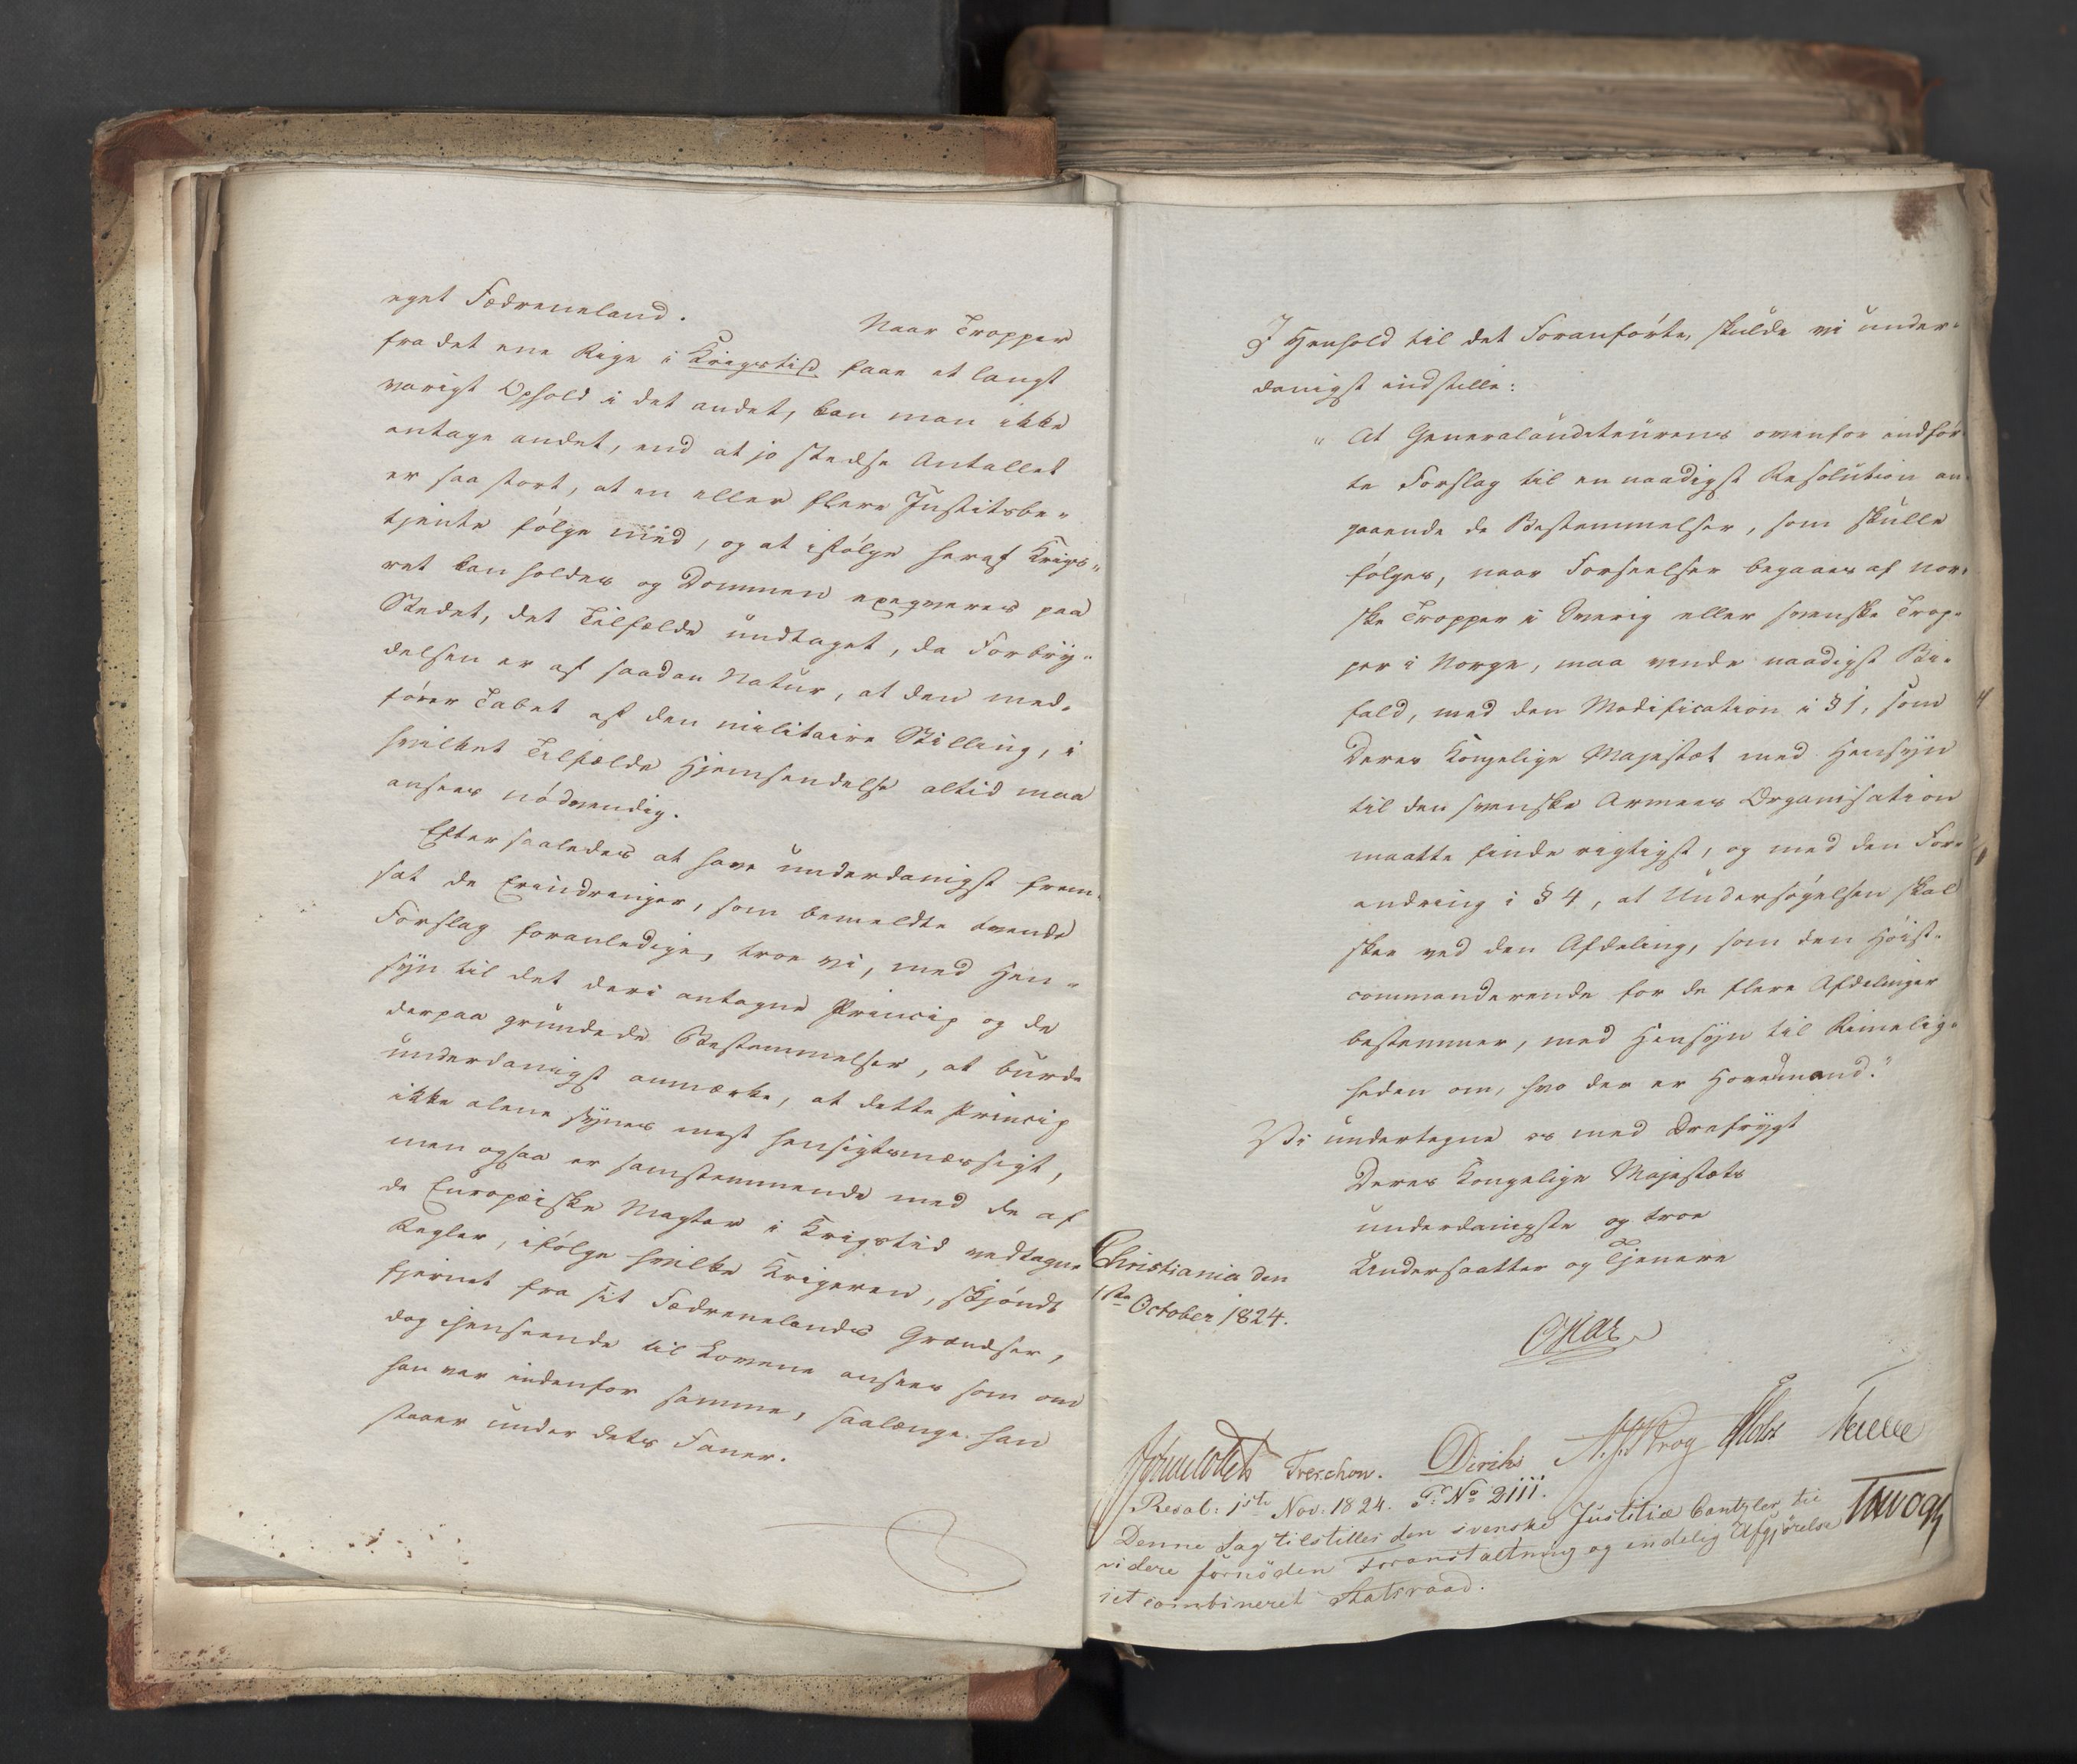 eget Fædreneland.
Naar Tropper
fra det ene Rige i Krigstid faae et langt
varigt Ophold i det andet, kan man ikke
antage andet, end at jo stedse Antallet
er saa stort, at en eller flere Justitsbe-
tjente følge med, og at ifølge heraf Krigs-
ret kan holdes og Dommen exeqveres paa
Stedet, det Tilfælde undtaget, da Forbry-
delsen er af saadan Natur, at den med-
fører Tabet af den militaire Stilling, i
hvilket Tilfælde Hjemsendelse altid maa
ansees nødvendig.
Efter saaledes at have underdanigst frem-
sat de Erindringer, som bemeldte tvende
Forslag foranledige, troe vi, med Hen-
syn til det deri antagne Princip og de
derpaa grundede Bestemmelser, at burde
underdanigst anmærke, at dette Princip
ikke alene synes mest hensigtsmæssigt,
men ogsaa er samstemmende med de af
de Europæiske Magter i Krigstid vedtagne
Regler, ifølge hvilke Krigeren, skjøndt
fjernet fra sit Fædrenelands Grændser,
dog ihenseende til Lovene ansees som om
han var indenfor samme, saalænge han
staaer under dets Faner.
I Henhold til det Foranførte, skulde vi under-
danigst indstille:
" At Generalauditeurens ovenfor indfør-
te Forslag til en naadigst Resolution an-
gaaende de Bestemmelser, som skulle
følges, naar Forseelser begaaes af nor-
ske Tropper i Sverig eller svenske Trop-
per i Norge, maa vinde naadigst Bi-
fald, med den Modification i § 1, som
Deres Kongelige Majestæt med Hensyn
til den svenske Armees Organisation
maatte finde rigtigst, og med den For-
andring i § 4, at Undersøgelsen skal
skee ved den Afdeling, som den Høist-
commanderende for de flere Afdelinger
bestemmer, med Hensyn til Rimelig-
heden om, hvo der er Hovedmand."
Vi undertegne os med Ærefrygt
Deres Kongelige Majestæts
underdanigste og troe
Undersaatter og Tjenere
Christiania den
1ste October 1824.
Oscar
Treschow. Diriks
Resol: 1ste Nov: 1824. F: No 2111.
Denne Sag tilstilles den svenske Justitiæ Cantzler til
videre fornöden Foranstaltning og endelig Afgjörelse
i et combineret Statsraad.